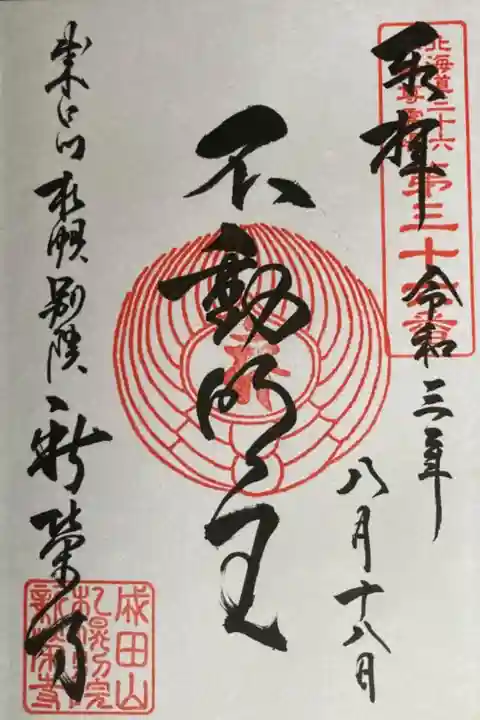 北海道三十六
不動尊霊場
第三十六番
奉拝
令和三年
八月十八日
不動明王
成田山札幌別院新榮寺
成田山
札幌別院
新榮寺